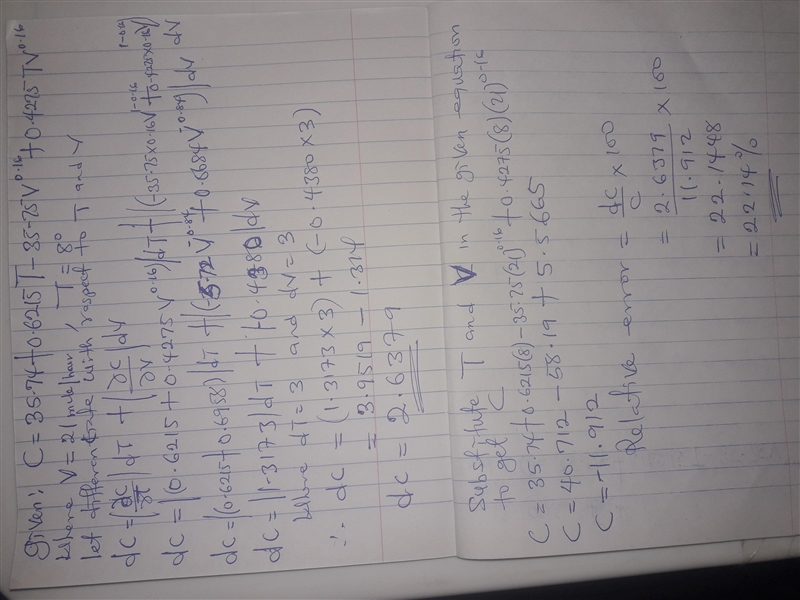 Given: C = 35.74 + 0.6215T - 35.75V^0.16 + 0.4275TV^0.16
Where V = 21 mile/hour, T = 8°
let differentiate with respect to T and V
dC = |∂C/∂T| dT + |∂C/∂V| dV
dC = |(0.6215 + 0.4275V^0.16)|dT + |(-35.75x0.16V^1-0.16 + 0.4275x0.16V^1-0.16)| dV
dC = |(0.6215 + 0.6958)|dT + |(-5.72V^-0.84 + 0.0684V^-0.84)|dV
dC = |1.3173|dT + |0.4380|dV
Where dT = 3 and dV = 3
∴ dC = (1.3173 x 3) + (-0.4380 x 3)
= 3.9519 - 1.314
dC = 2.6379
Substitute T and V in the given equation
to get C
C = 35.74 + 0.6215(8) - 35.75(21)^0.16 + 0.4275(8)(21)^0.16
C = 40.712 - 58.19 + 5.5665
C = -11.912
Relative error = dC/C x 100
= 2.6379/11.912 x 100
= 22.1448
= 22.14%